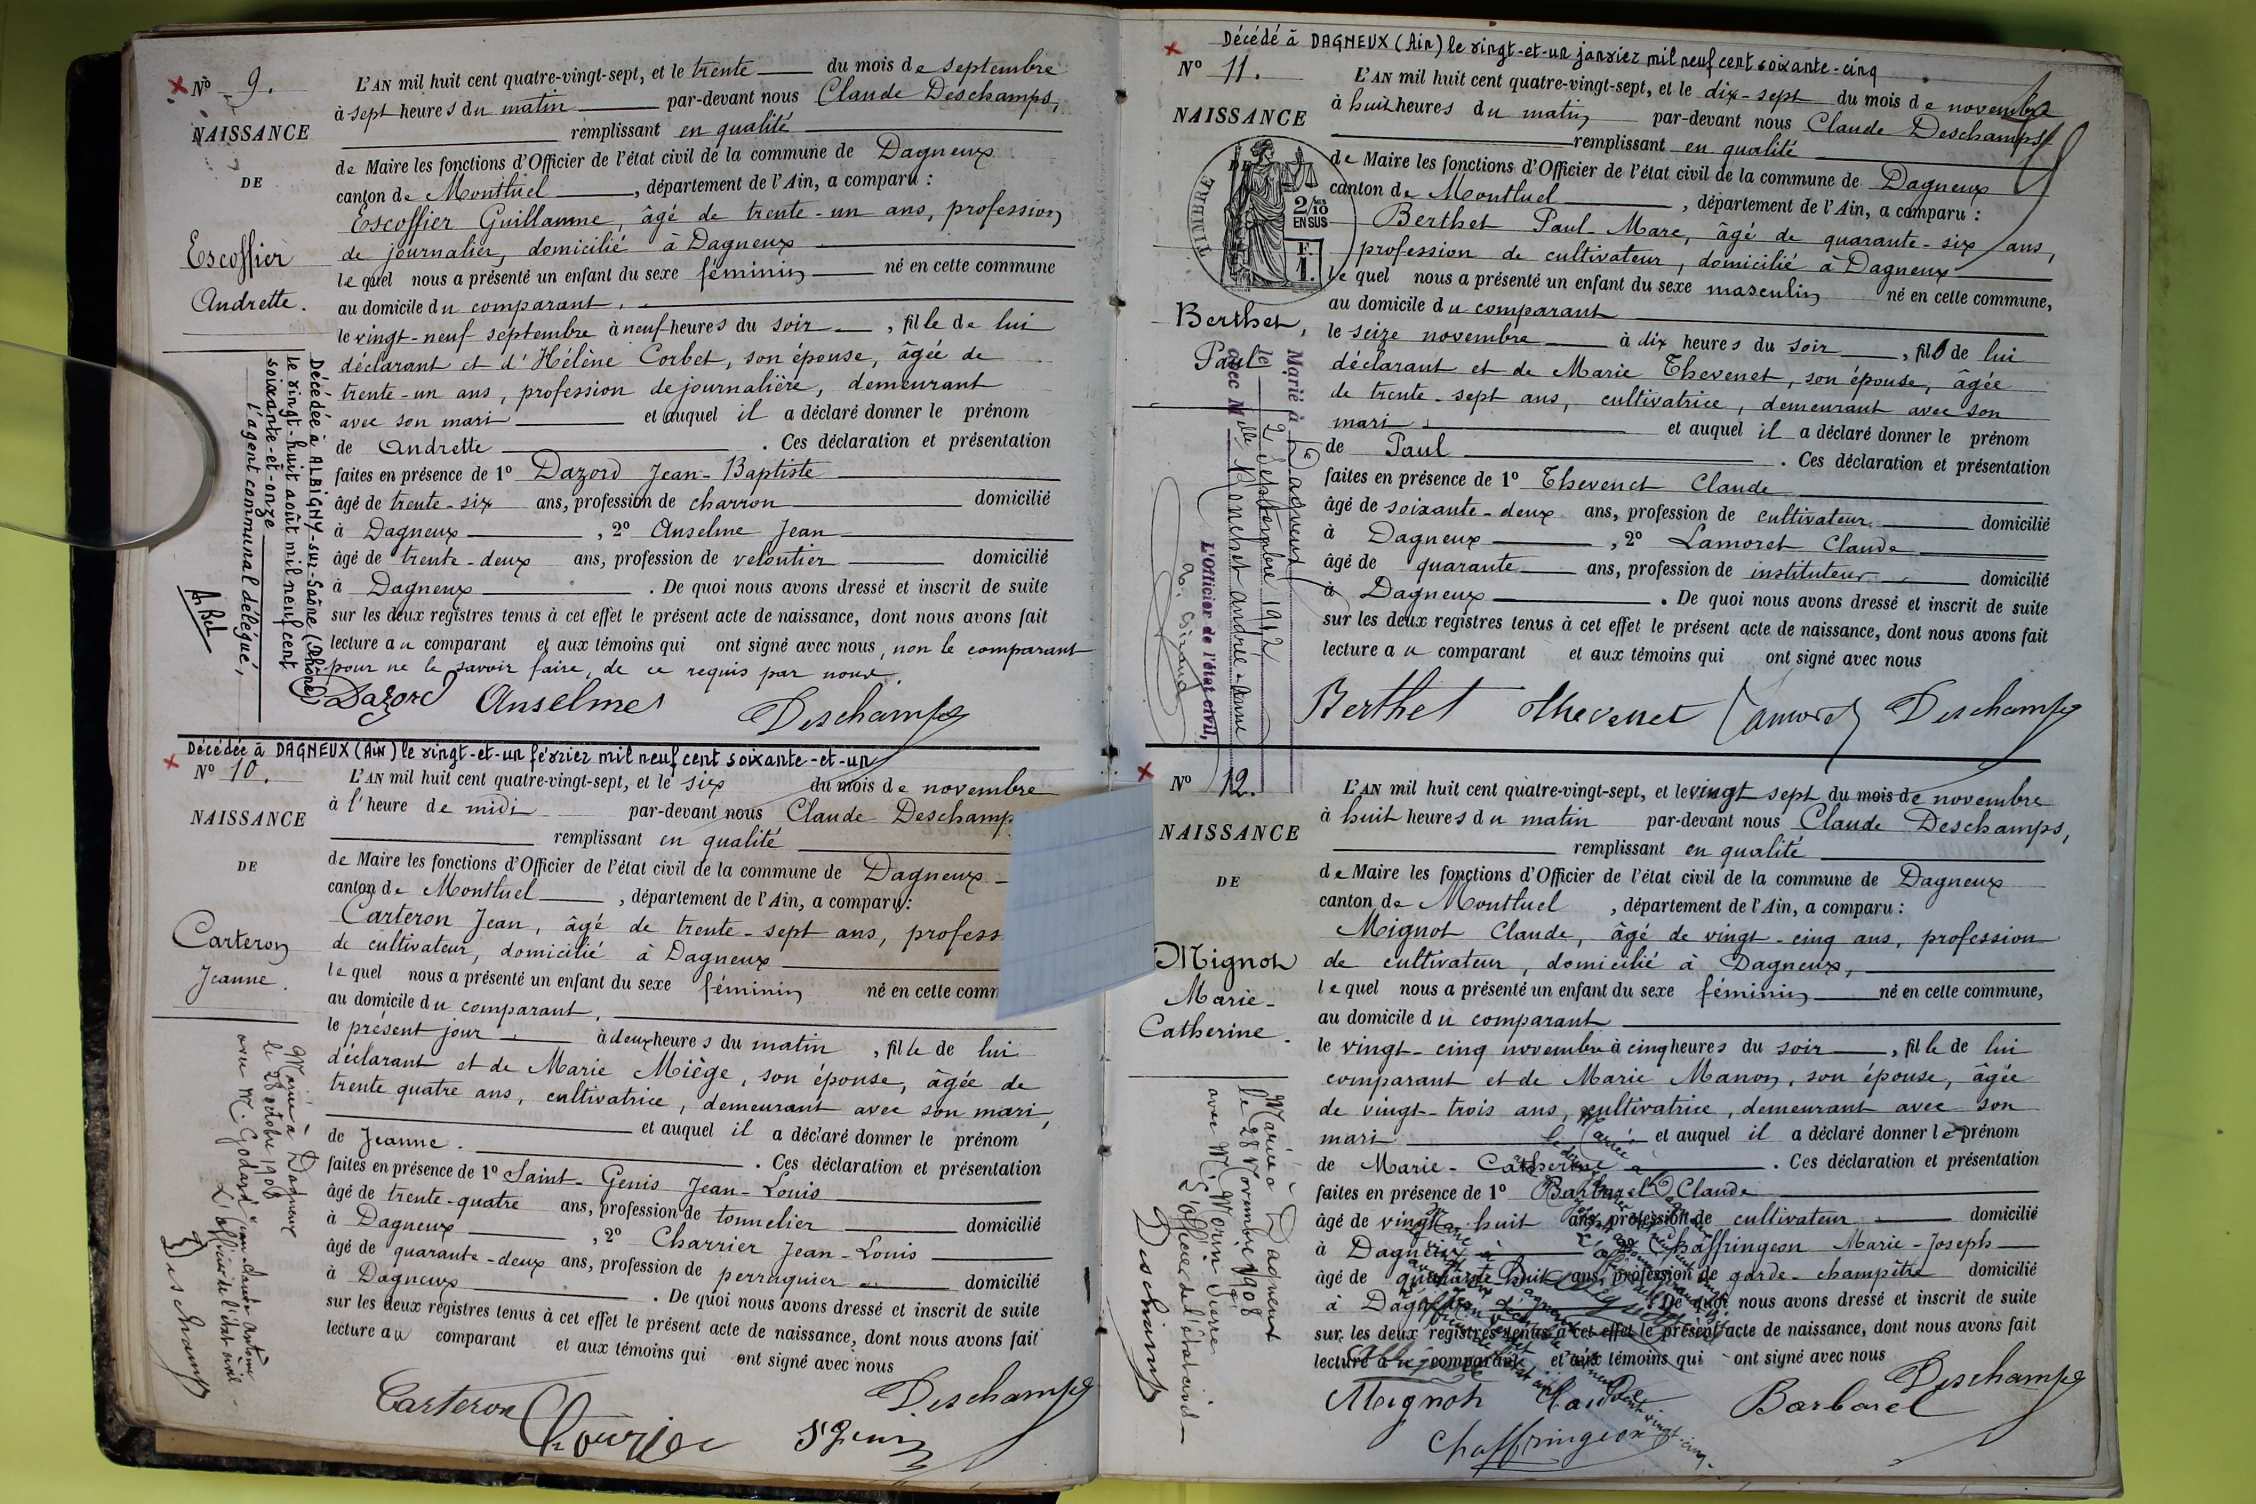 Nº 9.
NAISSANCE
DE
Escoffier
Andrette.
L'AN mil huit cent quatre-vingt-sept, et le trente du mois de septembre
à sept heures du matin par-devant nous Claude Deschamps,
remplissant en qualité
de Maire les fonctions d'Officier de l'état civil de la commune de Dagneux
canton de Montluel, département de l'Ain, a comparu :
Escoffier Guillaume, âgé de trente-un ans, profession
de journalier, domicilié à Dagneux
lequel nous a présenté un enfant du sexe féminin né en cette commune
au domicile du comparant,
le vingt-neuf septembre à neuf heures du soir, fille de lui
déclarant et d'Hélène Corbet, son épouse, âgée de
trente-un ans, profession de journalière, demeurant
avec son mari et auquel il a déclaré donner le prénom
de Andrette. Ces déclaration et présentation
faites en présence de 1º Dazord Jean-Baptiste
âgé de trente-six ans, profession de charron domicilié
à Dagneux, 2º Anselme Jean
âgé de trente-deux ans, profession de veloutier domicilié
à Dagneux. De quoi nous avons dressé et inscrit de suite
sur les deux registres tenus à cet effet le présent acte de naissance, dont nous avons fait
lecture au comparant et aux témoins qui ont signé avec nous, non le comparant
pour ne le savoir faire, de ce requis par nous.
Dazord Anselme Deschamps
Décédée à ALBIGNY-sur-Saône (Rhône)
le vingt-huit août mil neuf cent
soixante-et-onze
l'agent communal délégué,
Décédée à DAGNEUX (Ain) le vingt-et-un février mil neuf cent soixante-et-un
Nº 10.
NAISSANCE
DE
Carteron
Jeanne.
L'AN mil huit cent quatre-vingt-sept, et le six du mois de novembre
à l'heure de midi par-devant nous Claude Deschamp
remplissant en qualité
de Maire les fonctions d'Officier de l'état civil de la commune de Dagneux
canton de Montluel, département de l'Ain, a comparu :
Carteron Jean, âgé de trente-sept ans, profess
de cultivateur, domicilié à Dagneux
lequel nous a présenté un enfant du sexe féminin né en cette comm
au domicile du comparant,
le présent jour à deux heures du matin, fille de lui
déclarant et de Marie Miège, son épouse, âgée de
trente quatre ans, cultivatrice, demeurant avec son mari,
et auquel il a déclaré donner le prénom
de Jeanne. Ces déclaration et présentation
faites en présence de 1º Saint-Genis Jean-Louis
âgé de trente-quatre ans, profession de tonnelier domicilié
à Dagneux, 2º Charrier Jean-Louis
âgé de quarante-deux ans, profession de perruquier domicilié
à Dagneux. De quoi nous avons dressé et inscrit de suite
sur les deux registres tenus à cet effet le présent acte de naissance, dont nous avons fait
lecture au comparant et aux témoins qui ont signé avec nous
Carteron Deschamps
St Genis
Mariée à Dagneux
le 28 octobre 1908
avec M. Godard Jean Claude Antoine
L'officier de l'état civil
Deschamps
Décédé à DAGNEUX (Ain) le vingt-et-un janvier mil neuf cent soixante-cinq
Nº 11.
NAISSANCE
DE
TIMBRE
2/10
EN SUS
F.
1.
Berthet,
Paul
L'AN mil huit cent quatre-vingt-sept, et le dix-sept du mois de novembre
à huit heures du matin par-devant nous Claude Deschamps
remplissant en qualité
de Maire les fonctions d'Officier de l'état civil de la commune de Dagneux
canton de Montluel, département de l'Ain, a comparu :
Berthet Paul-Marc, âgé de quarante-six ans,
profession de cultivateur, domicilié à Dagneux
lequel nous a présenté un enfant du sexe masculin né en cette commune,
au domicile du comparant
le seize novembre à dix heures du soir, fils de lui
déclarant et de Marie Thevenet, son épouse, âgée
de trente-sept ans, cultivatrice, demeurant avec son
mari et auquel il a déclaré donner le prénom
de Paul. Ces déclaration et présentation
faites en présence de 1º Thevenet Claude
âgé de soixante-deux ans, profession de cultivateur domicilié
à Dagneux, 2º Lamoret Claude
âgé de quarante ans, profession de instituteur domicilié
à Dagneux. De quoi nous avons dressé et inscrit de suite
sur les deux registres tenus à cet effet le présent acte de naissance, dont nous avons fait
lecture au comparant et aux témoins qui ont signé avec nous
Berthet Thevenet Lamoret Deschamps
Marié à Dagneux
le 2 Septembre 1912
avec Mlle Ponchet Andrée-Anne
L'Officier de l'état civil,
Nº 12.
NAISSANCE
DE
Mignot
Marie-
Catherine.
L'AN mil huit cent quatre-vingt-sept, et le vingt sept du mois de novembre
à huit heures du matin par-devant nous Claude Deschamps,
remplissant en qualité
de Maire les fonctions d'Officier de l'état civil de la commune de Dagneux
canton de Montluel, département de l'Ain, a comparu :
Mignot Claude, âgé de vingt-cinq ans, profession
de cultivateur, domicilié à Dagneux,
lequel nous a présenté un enfant du sexe féminin né en cette commune,
au domicile du comparant
le vingt-cinq novembre à cinq heures du soir, fille de lui
comparant et de Marie Manon, son épouse, âgée
de vingt-trois ans, cultivatrice, demeurant avec son
mari et auquel il a déclaré donner le prénom
de Marie-Catherine. Ces déclaration et présentation
faites en présence de 1º Barbarel Claude
âgé de vingt huit ans, profession de cultivateur domicilié
à Dagneux Chaffringeon Marie-Joseph
âgé de quarante-huit ans, profession de garde-champêtre domicilié
à Dagneux De quoi nous avons dressé et inscrit de suite
sur les deux registres tenus à cet effet le présent acte de naissance, dont nous avons fait
lecture au comparant et aux témoins qui ont signé avec nous
Deschamps
Mignot Claude Barbarel
Chaffringeon
Mariée à Dagneux
le 28 Novembre 1908
avec M. Morin Pierre
L'officier de l'état civil
Deschamps